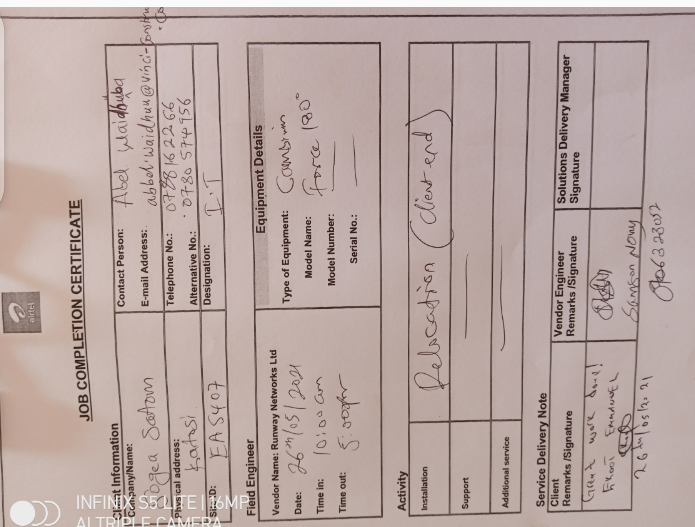 airtel
JOB COMPLETION CERTIFICATE
Client Information
Company/Name:
Sogea Satom
Physical address:
Katosi
EAS407
Contact Person: Abel Waidhuba
E-mail Address:
Telephone No.: 0778162266
Alternative No.: 0780 574956
Designation: I.T
Field Engineer
Vendor Name: Runway Networks Ltd
Date: 26th/05/2021
Time in: 10:00am
Time out: 5:00pm
Equipment Details
Type of Equipment: Cambium
Model Name: Force 180°
Model Number:
Serial No.:
Activity
Installation
Relocation (client end)
Support
Additional service
Service Delivery Note
Client
Remarks /Signature
Great work done!
EMMANUEL
26th/05/2021
Vendor Engineer
Remarks /Signature
Samson
Solutions Delivery Manager
Signature
INFINIX S5 LITE | 16MP
AI TRIPLE CAMERA